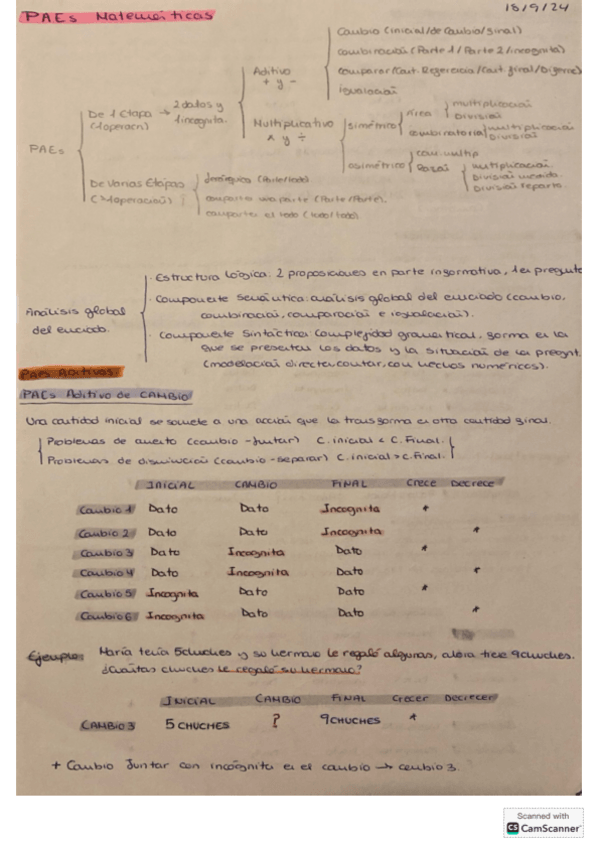 PAEs Matemáticas
18/9/24
PAEs
De 1 Etapa → 2 datos y
(1 operación) 1 incognita.
Aditivo
+ y -
Cambio (inicial/de cambio/final)
combinación (Parte 1 / Parte 2 / incognita)
comparar (Cant. Referencia / Cant. final /
igualación
Multiplicativo
x y ÷
simétrico
Área
multiplicación
División
combinatoria
multiplicación
División
asimétrico
multiplicación
División medida
División reparto.
De varias Etapas
(>1 operación)
Jerárquica (Parte/todo).
comparten una parte (Parte/Parte).
comparten el todo (todo/todo).
Análisis global
del enunciado.
· Estructura Lógica: 2 proposiciones en parte informativa, 1 en
· Componente Semántica: análisis global del enunciado (cambio,
combinación, comparación e igualación).
· Componente Sintáctica: Complejidad gramatical, forma en la
que se presentan los datos y la situación de la
(modelación directa, contar, con hechos numéricos).
PAEs Aditivos:
PAEs Aditivo de CAMBIO
Una cantidad inicial se somete a una acción que la transforma en otra cantidad final.
Problemas de aumento (cambio - juntar) C. inicial < C. Final.
Problemas de disminución (cambio - separar) C. inicial > C. Final.
INICIAL CAMBIO FINAL CRECE DECRECE
Cambio 1 Dato Dato Incognita *
Cambio 2 Dato Dato Incognita *
Cambio 3 Dato Incognita Dato *
Cambio 4 Dato Incognita Dato *
Cambio 5 Incognita Dato Dato *
Cambio 6 Incognita Dato Dato *
Ejemplo: María tenía 5 chuches y su hermano le regaló algunas, ahora tiene 9 chuches.
¿Cuántas chuches le regaló su hermano?
INICIAL CAMBIO FINAL Crecer Decrecer
CAMBIO 3 5 CHUCHES ? 9 CHUCHES *
+ Cambio Juntar con incógnita en el cambio → cambio 3.
Scanned with
CS CamScanner